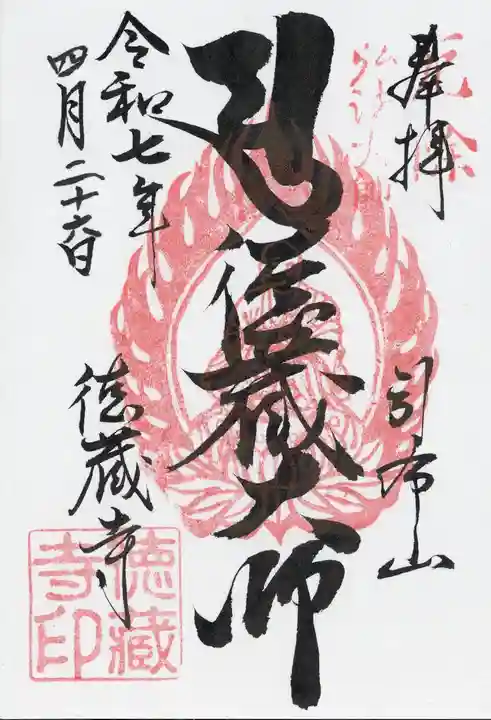 奉拝
引布山
徳蔵大師
令和七年
四月二十六日
徳蔵寺
徳藏
寺印